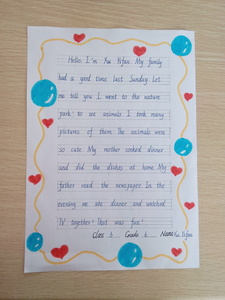 Hello, I'm Xu Yifan. My family
had a good time last Sunday. Let
me tell you. I went to the nature
park to see animals. I took many
pictures of them. The animals were
so cute. My mother cooked dinner
and did the dishes at home. My
father read the newspaper. In the
evening, we ate dinner and watched
TV together! That was fun!
Class 3 Grade 6 Name Xu Yifan